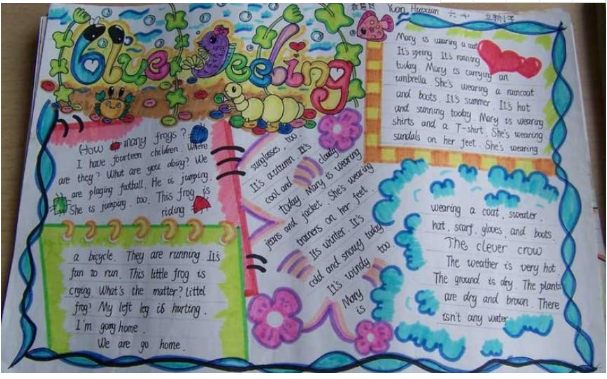 Blue Feeling
Yuan Haoxuan
How many frogs?
I have fourteen children. Where
are they? What are you doing? We
are playing football. He is jumping.
She is jumping too. This frog is
riding
a bicycle. They are running. It's
fun to run. This little frog is
crying. What's the matter? Littel
frog? My left leg is hurting.
I'm going home.
We are go home.
Mary is wearing a
It's spring. It's raining
today. Mary is carrying an
umbrella. She's wearing a raincoat
and boots. It's summer. It's hot
and sunning tooday. Mary is wearing
shirts and a T-shirt. She's wearing
sandals on her feet. She's wearing
sunglasses too.
It's autumn. It's
cool and cloudy
today. Mary is wearing
jeans and jacket. She's wearing
trainers on her feet.
It's winter. It's
cold and snowy today.
It's windy too.
Mary
is
wearing a coat, sweater,
hat, scarf, gloves, and boots.
The clever crow
The weather is very hot.
The ground is dry. The plants
are dry and brown. There
isn't any water.